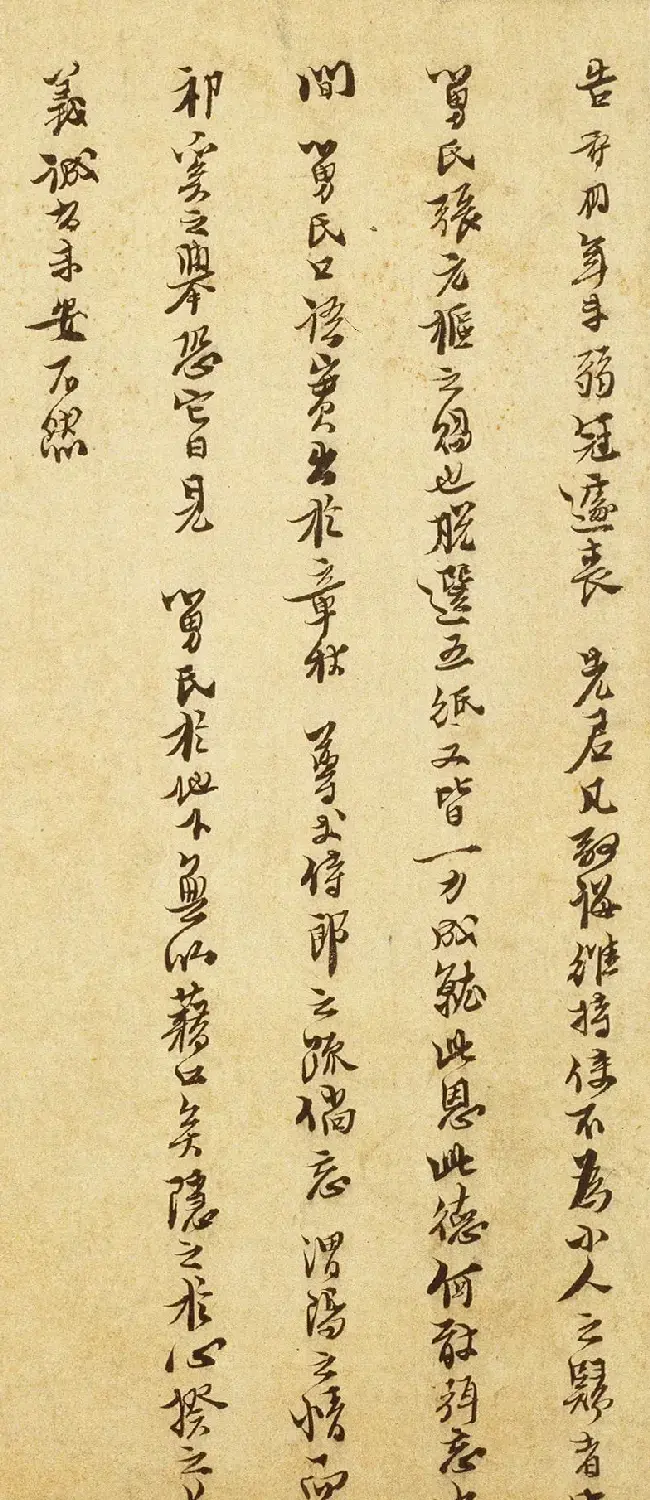 告 年未弱冠遽喪 先君凡教誨維持俾不為小人之歸者
舅氏張元樞之賜也脫選五紙又皆一力成就此恩此德何敢弭忘
間 舅氏口語實出於章 尊丈侍郎之疏倘忘 渭陽之情而
祁奚之舉恐它日見 舅氏於地下無以藉口矣隱之於心揆之
義誠有未安不然